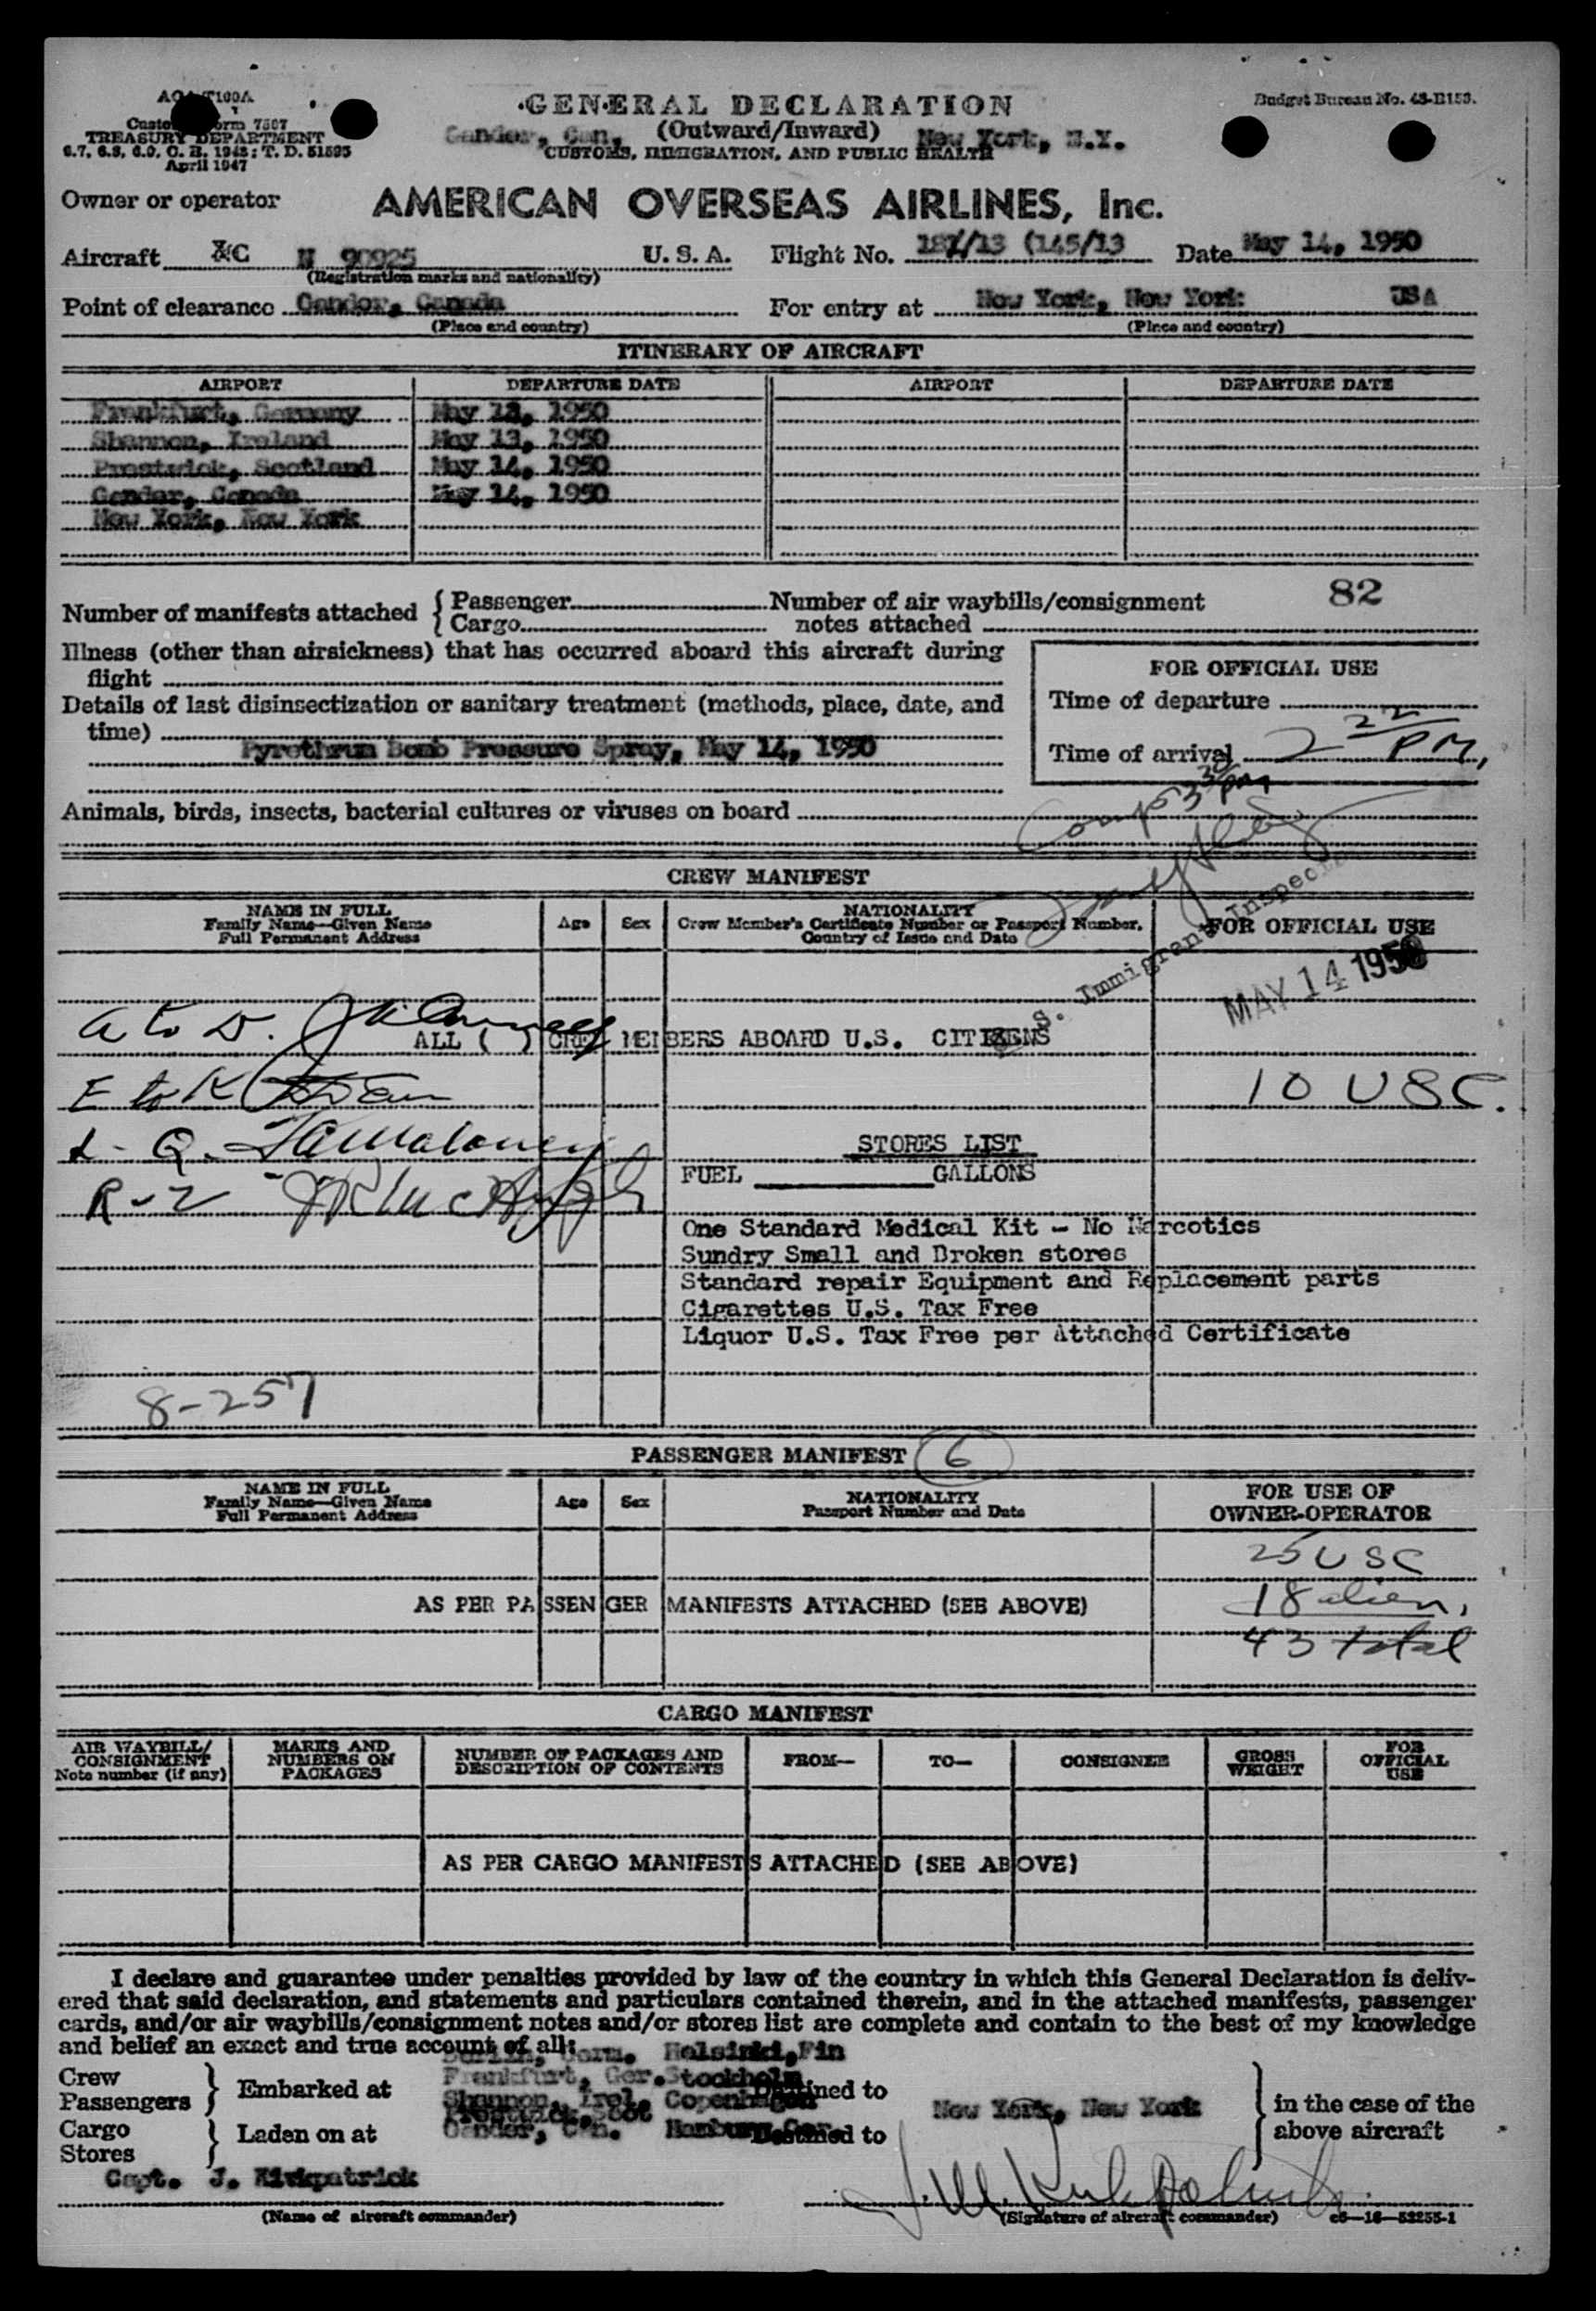 TREASURY DEPARTMENT
April 1947
GENERAL DECLARATION
(Outward/Inward)
Gander, Can. New York, N.Y.
CUSTOMS, IMMIGRATION, AND PUBLIC HEALTH
Budget Bureau No.
Owner or operator AMERICAN OVERSEAS AIRLINES, Inc.
Aircraft N 90925 U. S. A. Flight No. (145/13 Date May 14, 1950
(Registration marks and nationality)
Point of clearance Gander, Canada For entry at New York, New York USA
(Place and country) (Place and country)
ITINERARY OF AIRCRAFT
AIRPORT DEPARTURE DATE AIRPORT DEPARTURE DATE
Frankfurt, Germany May 13, 1950
Shannon, Ireland May 13, 1950
Prestwick, Scotland May 14, 1950
Gander, Canada May 14, 1950
New York, New York
82
Number of manifests attached { Passenger Number of air waybills/consignment
{ Cargo notes attached
Illness (other than airsickness) that has occurred aboard this aircraft during
flight
FOR OFFICIAL USE
Details of last disinsectization or sanitary treatment (methods, place, date, and
time)
Pyrethrum Bomb Pressure Spray, May 14, 1950
Time of departure
Time of arrival 2 22 PM,
Comp 3 30 pm
Animals, birds, insects, bacterial cultures or viruses on board
CREW MANIFEST
NAME IN FULL
Family Name—Given Name
Full Permanent Address
Age Sex
NATIONALITY
Crew Member's Certificate Number or Passport Number,
Country of Issue and Date
FOR OFFICIAL USE
S. Immigrant Inspector
MAY 14 1950
A to D.
ALL ( ) CREW MEMBERS ABOARD U.S. CITIZENS
E to K
10 USC.
L - Q.
STORES LIST
FUEL GALLONS
R - Z
One Standard Medical Kit - No Narcotics
Sundry Small and Broken stores
Standard repair Equipment and Replacement parts
Cigarettes U.S. Tax Free
Liquor U.S. Tax Free per Attached Certificate
8-257
PASSENGER MANIFEST 6
NAME IN FULL
Family Name—Given Name
Full Permanent Address
Age Sex
NATIONALITY
Passport Number and Date
FOR USE OF
OWNER-OPERATOR
25 USC
AS PER PASSENGER MANIFESTS ATTACHED (SEE ABOVE)
18 alien,
43 total
CARGO MANIFEST
AIR WAYBILL/
CONSIGNMENT
Note number (if any)
MARKS AND
NUMBERS ON
PACKAGES
NUMBER OF PACKAGES AND
DESCRIPTION OF CONTENTS
FROM—
TO—
CONSIGNEE
GROSS
WEIGHT
FOR
OFFICIAL
USE
AS PER CARGO MANIFESTS ATTACHED (SEE ABOVE)
I declare and guarantee under penalties provided by law of the country in which this General Declaration is deliv-
ered that said declaration, and statements and particulars contained therein, and in the attached manifests, passenger
cards, and/or air waybills/consignment notes and/or stores list are complete and contain to the best of my knowledge
and belief an exact and true account of all:
Berlin, Germ. Helsinki, Fin
Crew
Passengers } Embarked at Frankfurt, Ger. Stockholm
Shannon, Irel. Copenhagen Destined to New York, New York } in the case of the
above aircraft
Prestwick, Scot
Cargo
Stores } Laden on at Gander, Can. Hamburg, Ger. Destined to
Capt. J. Kirkpatrick
J. W. Kirkpatrick
(Name of aircraft commander) (Signature of aircraft commander)